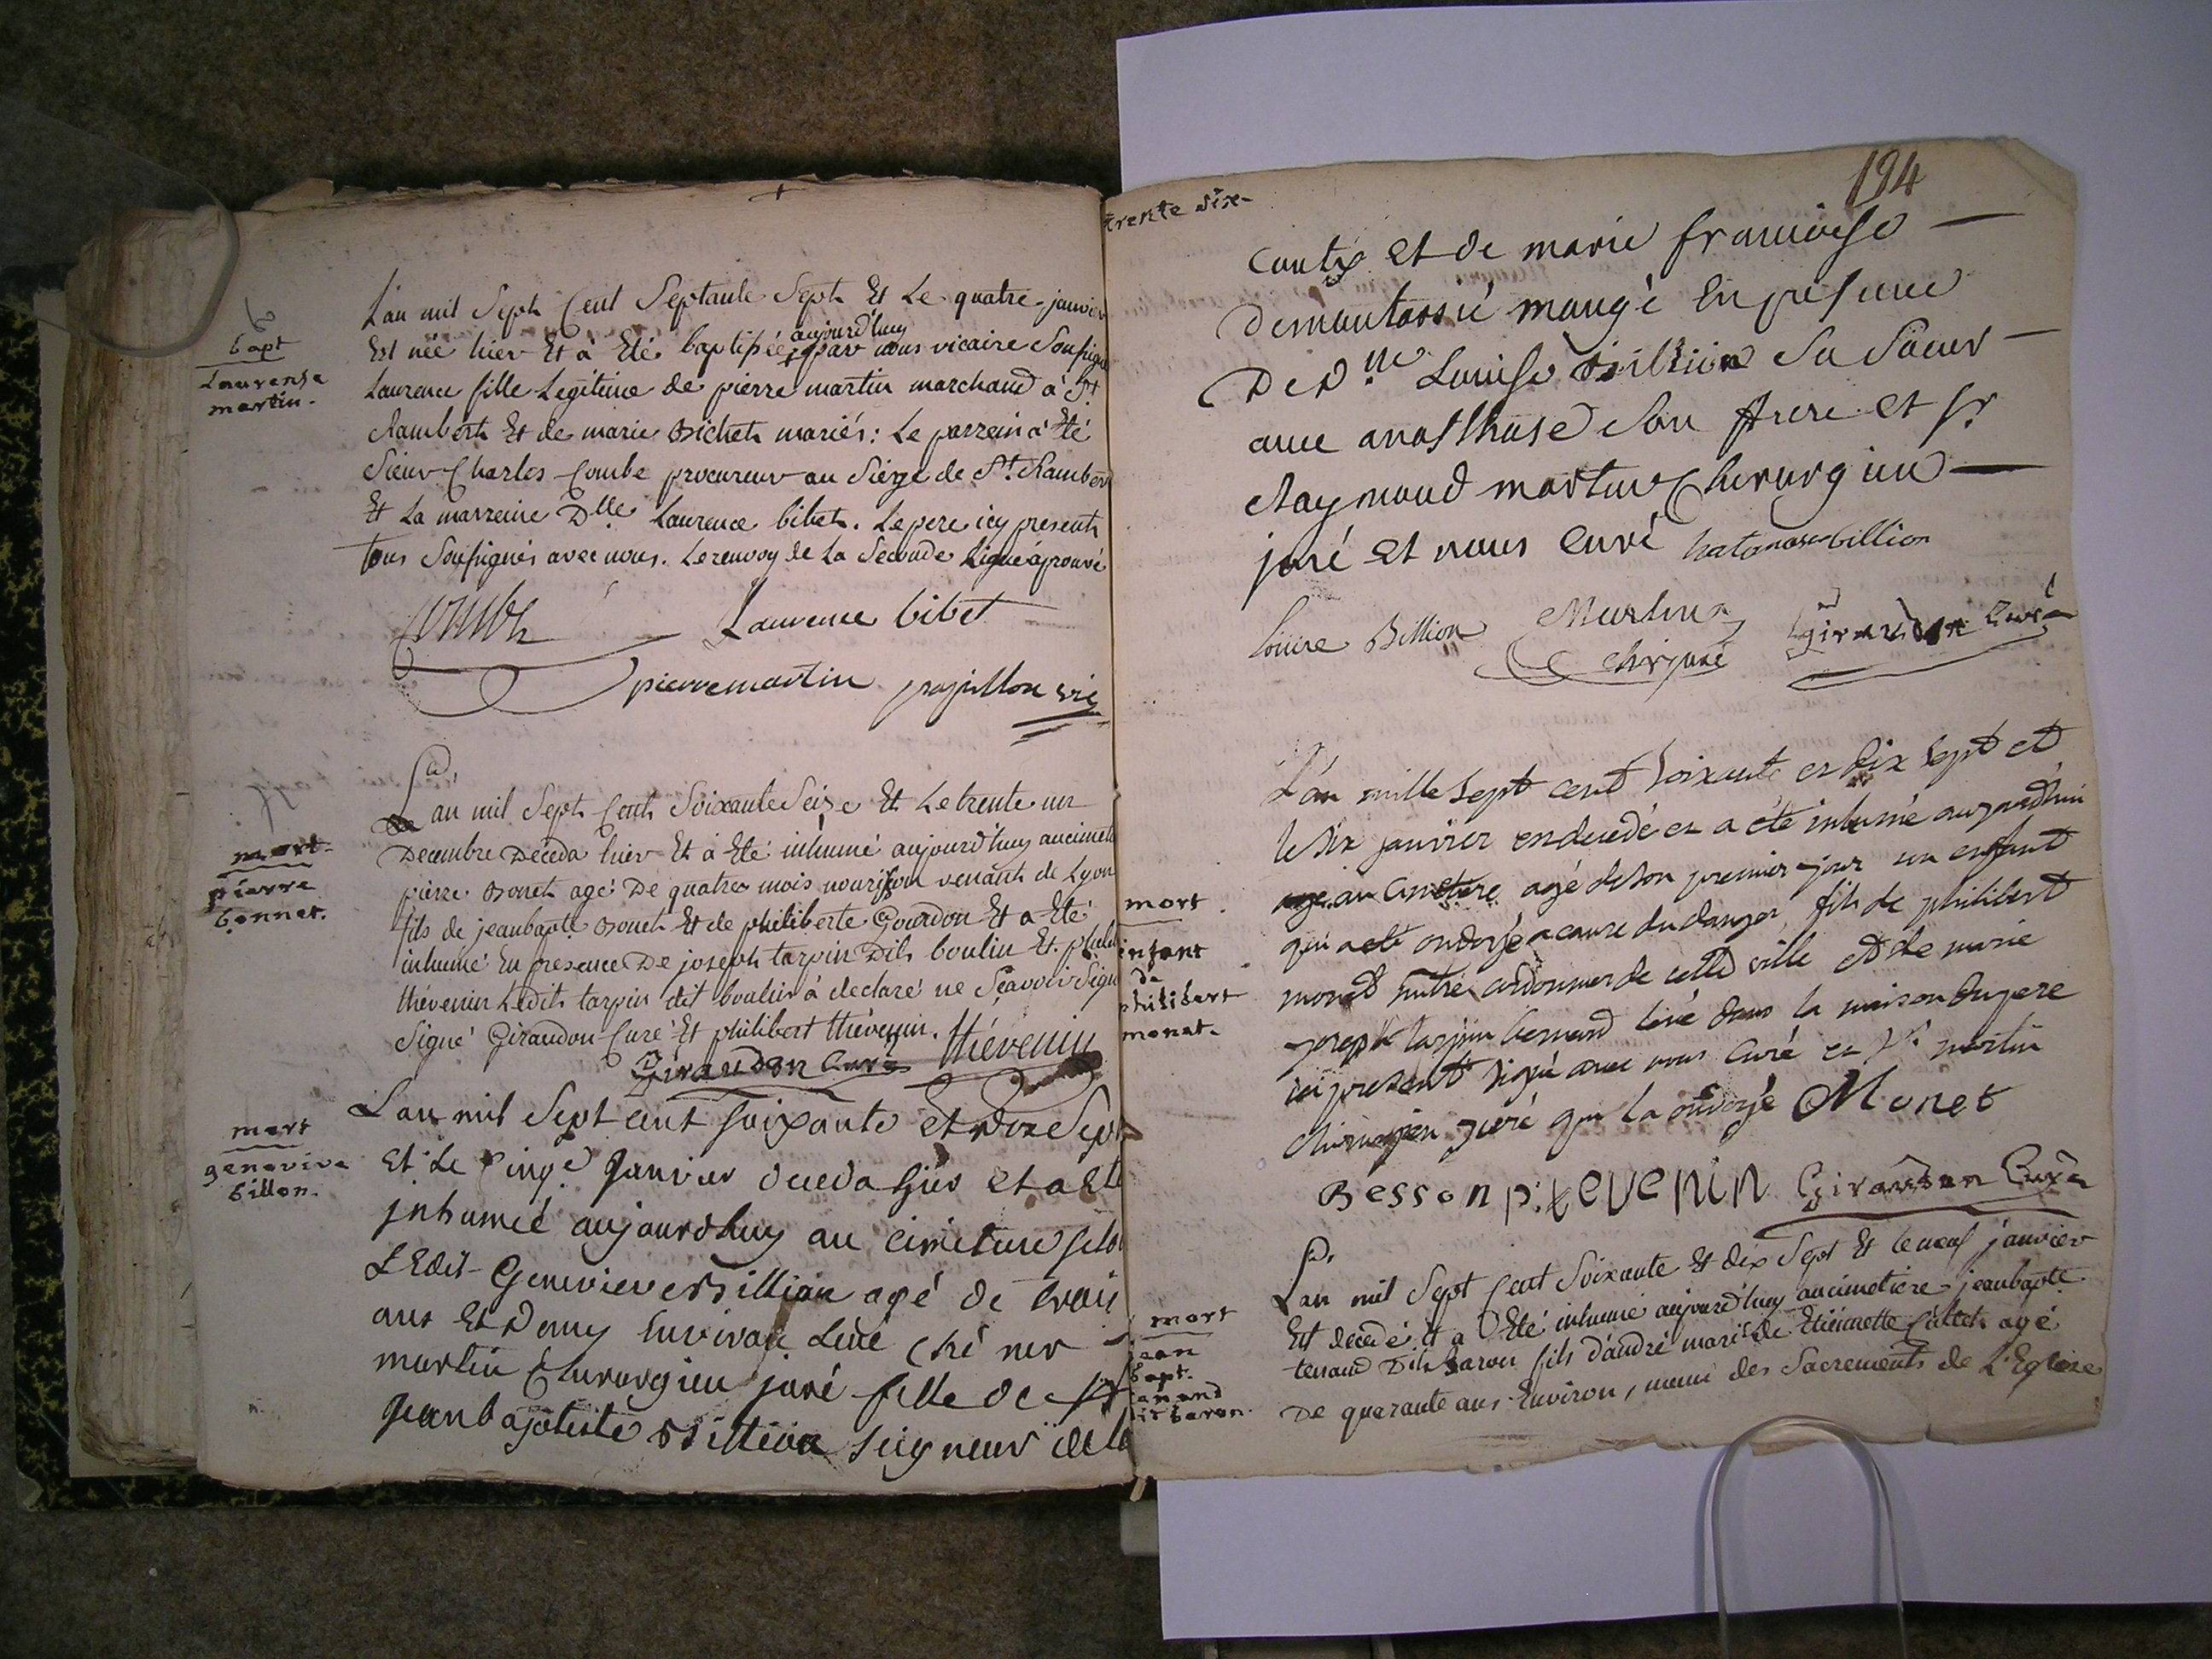 bapt
Laurense
martin.
L'an mil Sept Cent Septante Sept Et Le quatre janvier
Est née hier Et à Eté baptisée aujourd'huy par nous vicaire Sousigné
Laurence fille Legitime de pierre martin marchand à St
Rambert Et de marie Bichet mariés: Le parrein à Eté
Sieur Charles Combe procureur au Siege de St. Rambert
Et La marreine Dlle Laurence bibet. Le pere icy present
tous Sousignés avec nous. Le renvoy de La Seconde Ligne áprouvé
Combe Laurence bibet
pierre martin papillon vic
mort
pierre
bonnet.
L'an mil Sept Cent Soixante Seize Et Le trente un
Decembre Déceda hier Et à Eté inhumé aujourd'huy au cimet
pierre Bonet agé De quatre mois nourisson venant de Lyon
fils de jeanbapte Bonet Et de philiberte Gourdon Et a Eté
inhumé En presence De joseph tarpin Dit boulin Et. phili
thévenin Ledit tarpin dit boulin à declaré ne Sçavoir Sign
Signé Giraudon Curé Et philibert thévenin. thévenin
Giraudon Curé
mort
genevive
billon.
L'an mil Sept cent soixante et dix Sept
et Le Cinqe Janvier deceda hier et a eté
jnhumeé aujourdhuy au cimetiere selon
L'Edit Genevieve Billion agé de trois
ans Et Demy Environ chés mr
martin Chirurgien juré fille de Sr
Jean baptiste Billion seigneur de la
trente six
194
et de marie francoise
mangé En presence
De Dlle Louise Billion Sa Soeur
avec anasthase Son frere et Sr
Raymond martin Chirurgien
juré et nous curé billion
Louise Billion Martin Giraudon Curé
chir juré
mort
enfant
de
philibert
monet.
L'an mille sept cent soixante et dix sept et
le six janvier est decedé et a été inhumé aujourd'hui
au cimetiere agé de son premier jour un enfant
qui a eté ondoyé a cause du danger fils de philibert
monet maitre cordonnier de cette ville et de marie
joseph tarpin dans la maison du pere
ici present signé avec nous curé et Sr martin
chirurgien juré qui la ondoyé Monet
Besson p. tevenin Giraudon Curé
mort
jean
bapt.
tenand
dit baron.
L'an mil Sept Cent Soixante Et dix Sept Et le neuf janvier
Est decédé Et a Eté inhumé aujourd'huy au cimetiere jeanbapte
tenaud Dit baron fils d'andré mari de Etiennette agé
De quarante ans Environ, muni des Sacrements de L'Eglise